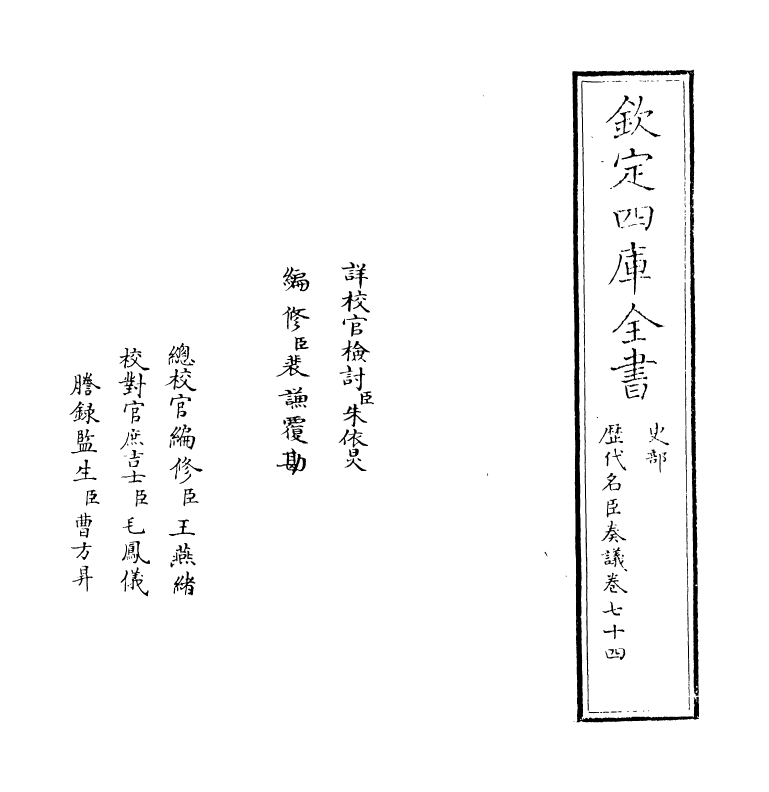 欽定四庫全書
史部
歴代名臣奏議卷七十四
詳校官檢討臣朱依炅
編修臣裴謙覆勘
總校官編修臣王燕緒
校對官庶吉士臣毛鳳儀
謄録監生臣曹方昇